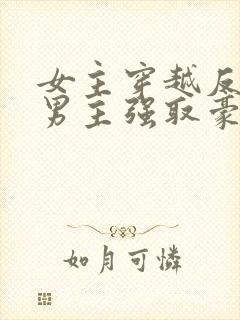 女主穿越反
男主强取豪
如月可憐